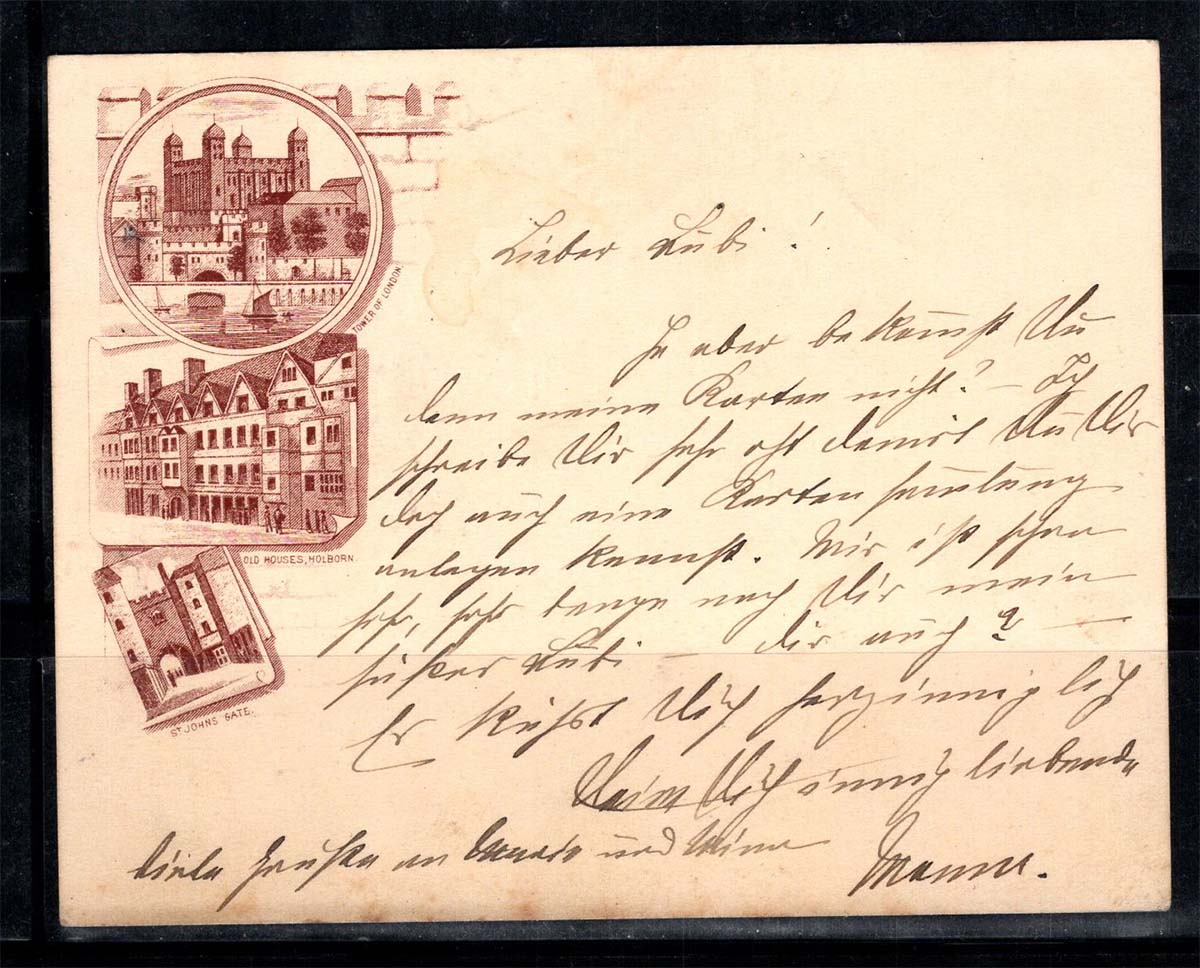 TOWER OF LONDON.
OLD HOUSES, HOLBORN.
ST JOHNS GATE.
Lieber Bubi!
Ja aber bekomst Du
denn meine Karten nicht? – Ich
schreibe Dir sehr oft damit Du Dir
doch auch eine Kartensamlung
anlegen kannst. Mir ist schon
sehr, sehr bange nach Dir mein
süßer Bubi – dir auch? –
Es küßt Dich herzinniglich
Deine Dich innig liebende
Mama.
Viele Grüße an und Mina